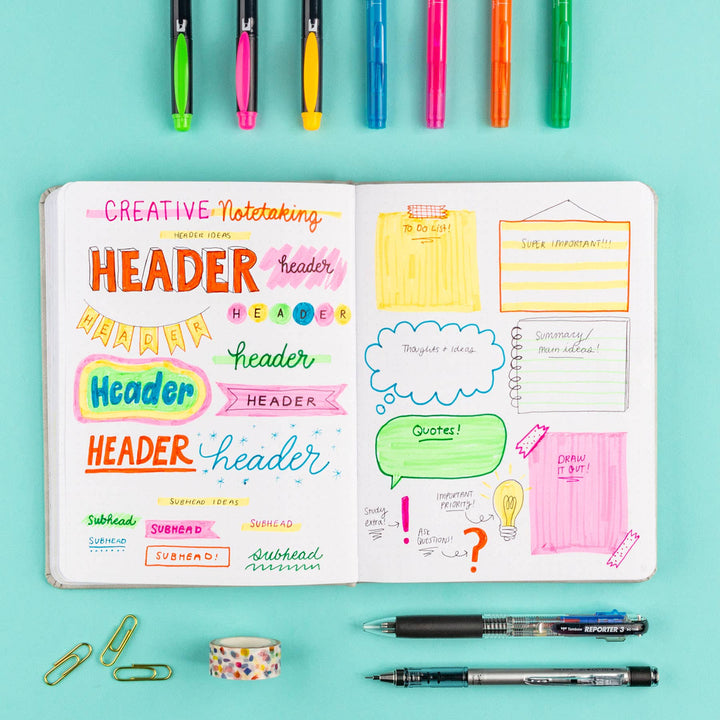 CREATIVE Notetaking
HEADER IDEAS
HEADER
header
HEADER
HEADER
header
Header
HEADER
HEADER
header
SUBHEAD IDEAS
Subhead
SUBHEAD
SUBHEAD
SUBHEAD
SUBHEAD!
subhead
TO DO LIST!
SUPER IMPORTANT!!!
Thoughts + Ideas
Summary/
main ideas!
Quotes!
DRAW
IT OUT!
Study
extra!
IMPORTANT
PRIORITY!
ASK
QUESTIONS!
Tombow REPORTER 3